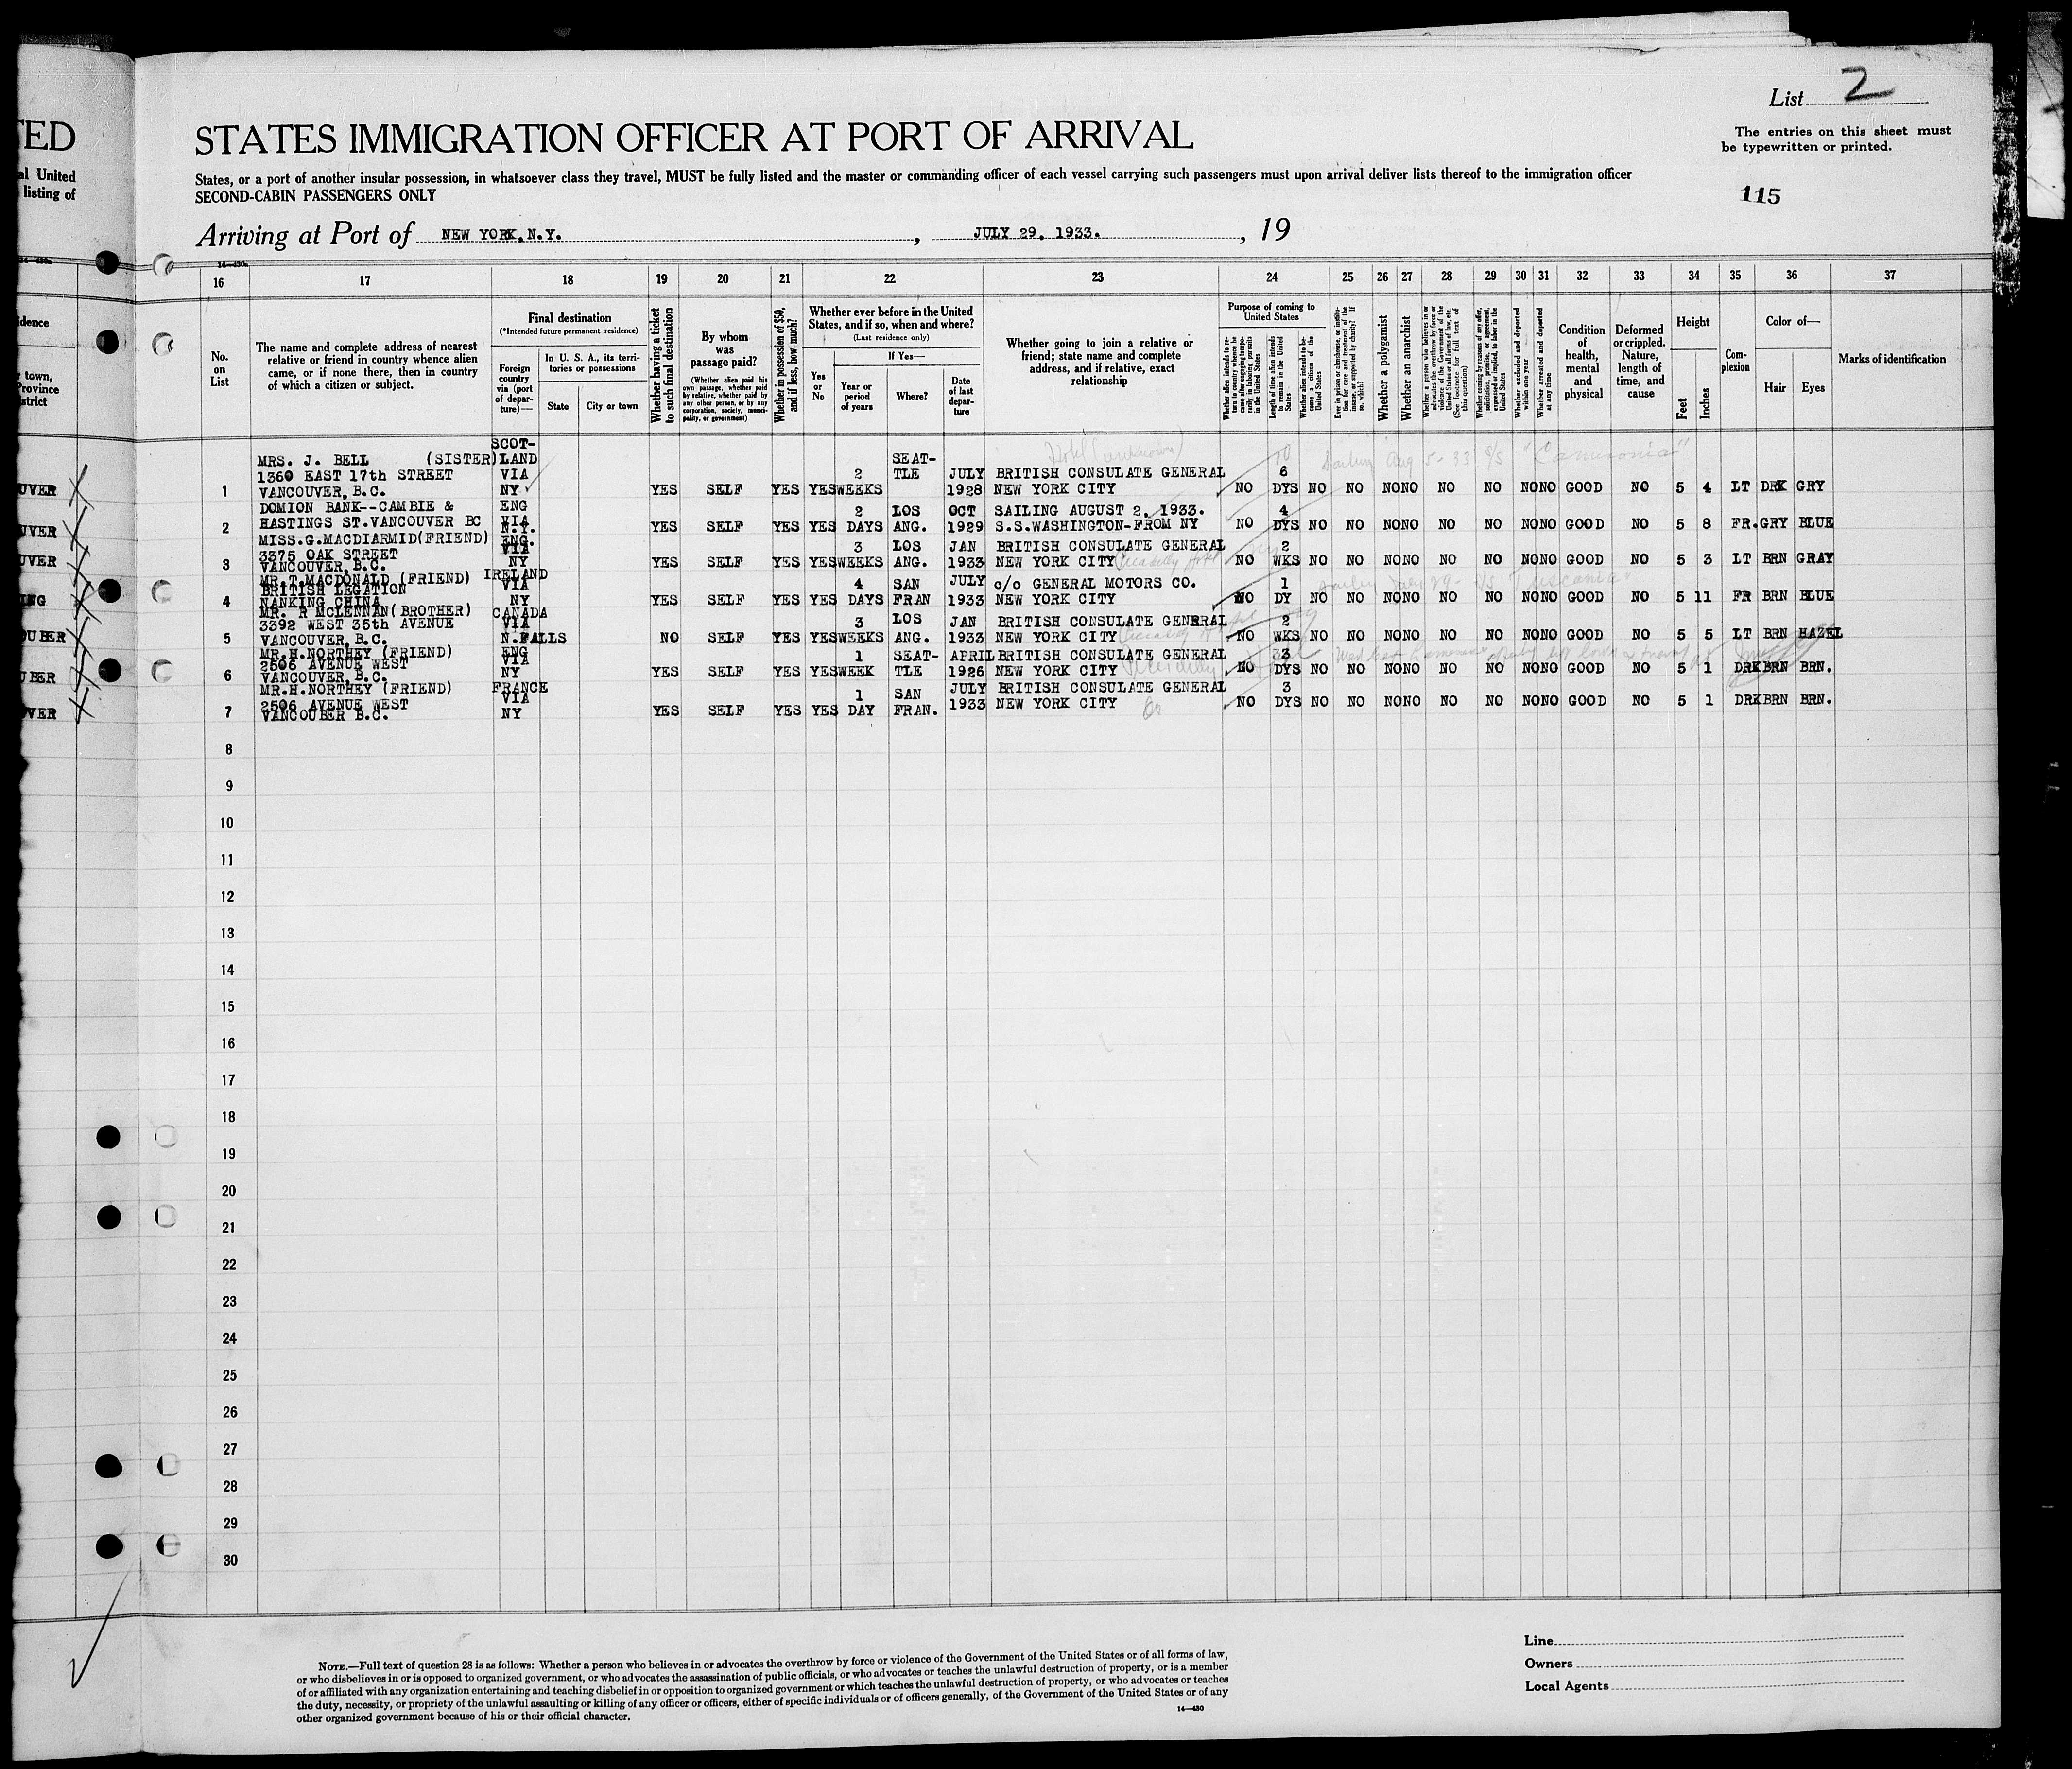 List 2
TED
STATES IMMIGRATION OFFICER AT PORT OF ARRIVAL
The entries on this sheet must
be typewritten or printed.
al United
listing of
States, or a port of another insular possession, in whatsoever class they travel, MUST be fully listed and the master or commanding officer of each vessel carrying such passengers must upon arrival deliver lists thereof to the immigration officer
SECOND-CABIN PASSENGERS ONLY
115
Arriving at Port of NEW YORK, N.Y. , JULY 29, 1933. , 19
16 17 18 19 20 21 22 23 24 25 26 27 28 29 30 31 32 33 34 35 36 37
No. on List
The name and complete address of nearest relative or friend in country whence alien came, or if none there, then in country of which a citizen or subject.
Final destination
(*Intended future permanent residence)
Foreign country via (port of departure)—
In U. S. A., its territories or possessions
State
City or town
Whether having a ticket to such final destination
By whom was passage paid?
(Whether alien paid his own passage, whether paid by relative, whether paid by any other person, or by any corporation, society, municipality, or government)
Whether in possession of $50, and if less, how much?
Whether ever before in the United States, and if so, when and where?
(Last residence only)
If Yes—
Yes or No
Year or period of years
Where?
Date of last departure
Whether going to join a relative or friend; state name and complete address, and if relative, exact relationship
Purpose of coming to United States
Whether alien intends to return to country whence he came after engaging temporarily in laboring pursuits in the United States
Length of time alien intends to remain in the United States
Whether alien intends to become a citizen of the United States
Ever in prison or almshouse, or institution for care and treatment of the insane, or supported by charity? If so, which?
Whether a polygamist
Whether an anarchist
Whether a person who believes in or advocates the overthrow by force or violence of the Government of the United States or all forms of law, etc. (See footnote for full text of this question)
Whether coming by reasons of any offer, solicitation, promise, or agreement, expressed or implied, to labor in the United States
Whether excluded and deported within one year
Whether arrested and deported at any time
Condition of health, mental and physical
Deformed or crippled. Nature, length of time, and cause
Height
Feet
Inches
Complexion
Color of—
Hair
Eyes
Marks of identification
UVER 1 MRS. J. BELL (SISTER) 1360 EAST 17th STREET VANCOUVER, B.C. SCOT-LAND VIA NY YES SELF YES YES 2 WEEKS SEAT-TLE JULY 1928 BRITISH CONSULATE GENERAL NEW YORK CITY NO 6 DYS NO NO NO NO NO NO NO NO GOOD NO 5 4 LT DRK GRY
Hotel (unknown) 10 Sailing Aug 5-33 S/S "Cameronia"
UVER 2 DOMION BANK--CAMBIE & HASTINGS ST.VANCOUVER BC ENG VIA N.Y. YES SELF YES YES 2 DAYS LOS ANG. OCT 1929 SAILING AUGUST 2, 1933. S.S.WASHINGTON-FROM NY NO 4 DYS NO NO NO NO NO NO NO NO GOOD NO 5 8 FR. GRY BLUE
UVER 3 MISS.G.MACDIARMID(FRIEND) 3375 OAK STREET VANCOUVER, B.C. ENG. VIA NY YES SELF YES YES 3 WEEKS LOS ANG. JAN 1933 BRITISH CONSULATE GENERAL NEW YORK CITY NO 2 WKS NO NO NO NO NO NO NO NO GOOD NO 5 3 LT BRN GRAY
ING 4 MR.T.MACDONALD (FRIEND) BRITISH LEGATION NANKING CHINA IRELAND VIA NY YES SELF YES YES 4 DAYS SAN FRAN JULY 1933 c/o GENERAL MOTORS CO. NEW YORK CITY NO 1 DY NO NO NO NO NO NO NO NO GOOD NO 5 11 FR BRN BLUE
Sailing July 29- S/S Tuscania
OUBER 5 MR. R MCLENNAN(BROTHER) 3392 WEST 35th AVENUE VANCOUVER, B.C. CANADA VIA N.FALLS NO SELF YES YES 3 WEEKS LOS ANG. JAN 1933 BRITISH CONSULATE GENERAL NEW YORK CITY NO 2 WKS NO NO NO NO NO NO NO NO GOOD NO 5 5 LT BRN HAZEL
UBER 6 MR.H.NORTHEY (FRIEND) 2506 AVENUE WEST VANCOUVER, B.C. ENG VIA NY YES SELF YES YES 1 WEEK SEAT-TLE APRIL 1926 BRITISH CONSULATE GENERAL NEW YORK CITY NO 3 DYS NO NO NO NO NO NO NO NO GOOD NO 5 1 DRK BRN BRN.
UVER 7 MR.H.NORTHEY (FRIEND) 2506 AVENUE WEST VANCOUBER B.C. FRANCE VIA NY YES SELF YES YES 1 DAY SAN FRAN. JULY 1933 BRITISH CONSULATE GENERAL NEW YORK CITY NO 3 DYS NO NO NO NO NO NO NO NO GOOD NO 5 1 DRK BRN BRN.
8
9
10
11
12
13
14
15
16
17
18
19
20
21
22
23
24
25
26
27
28
29
30
Line
Owners
Local Agents
NOTE.—Full text of question 28 is as follows: Whether a person who believes in or advocates the overthrow by force or violence of the Government of the United States or of all forms of law,
or who disbelieves in or is opposed to organized government, or who advocates the assassination of public officials, or who advocates or teaches the unlawful destruction of property, or is a member
of or affiliated with any organization entertaining and teaching disbelief in or opposition to organized government or which teaches the unlawful destruction of property, or who advocates or teaches
the duty, necessity, or propriety of the unlawful assaulting or killing of any officer or officers, either of specific individuals or of officers generally, of the Government of the United States or of any
other organized government because of his or their official character.
14—430